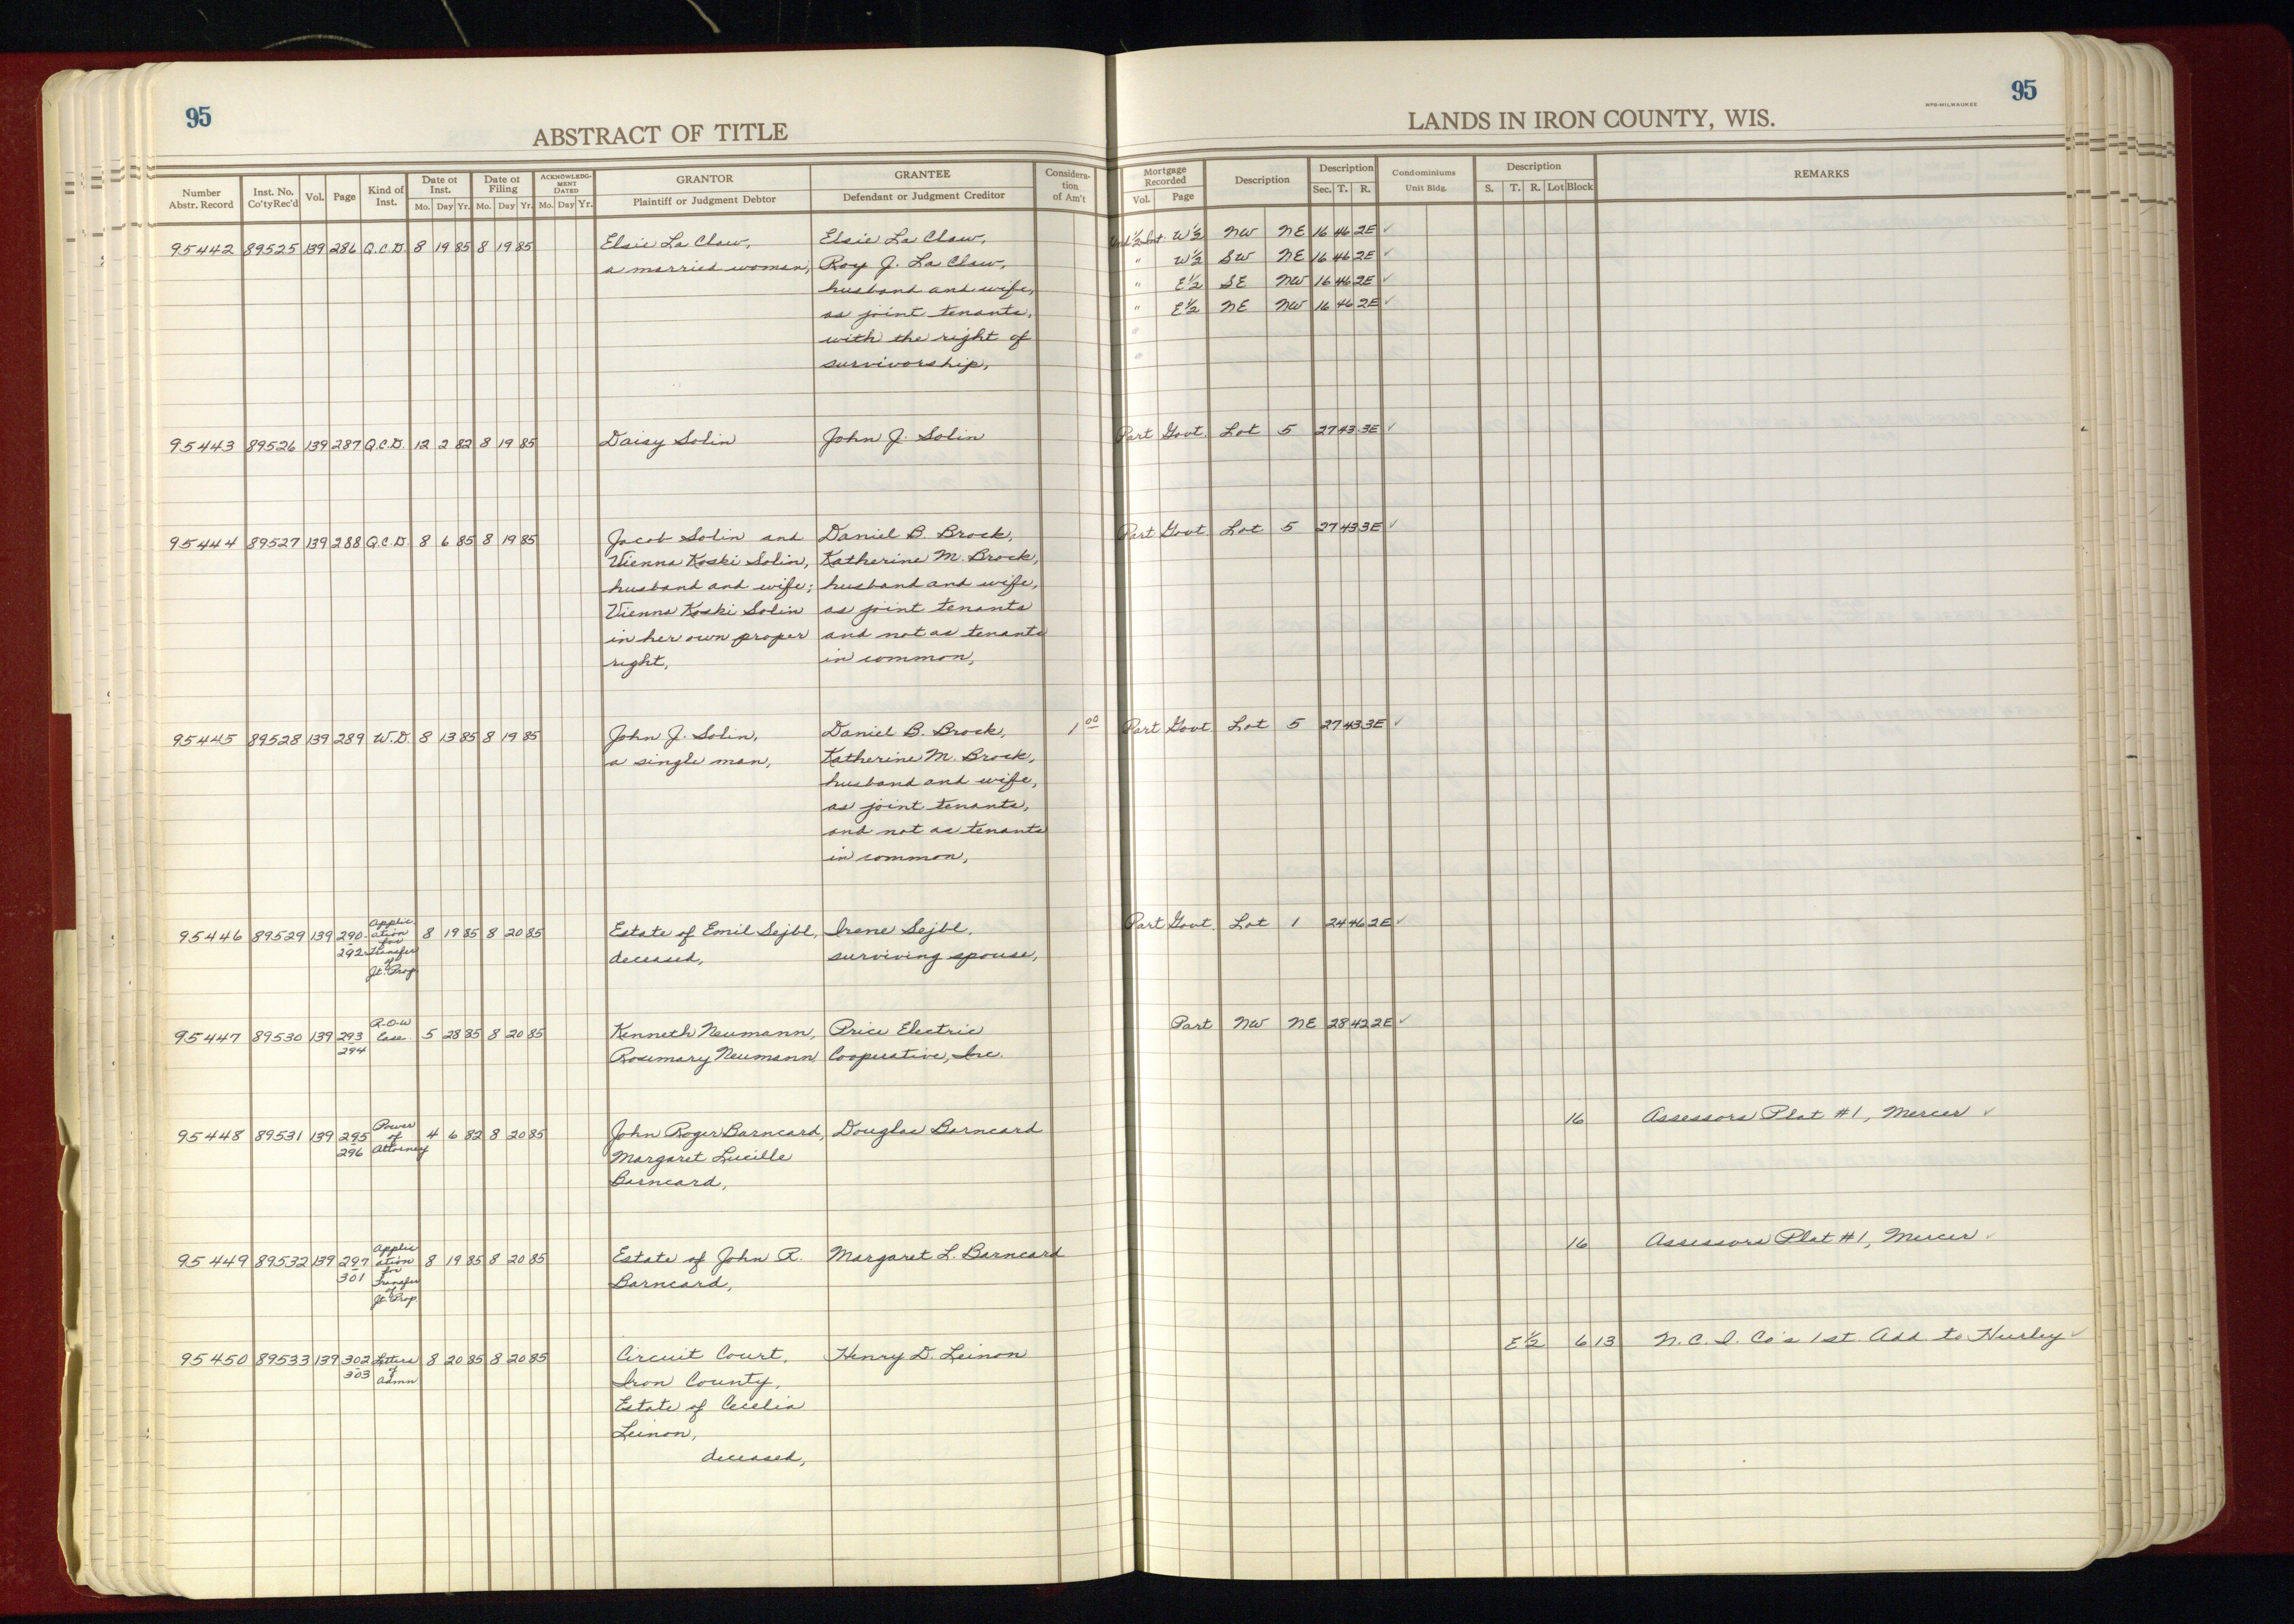 95
ABSTRACT OF TITLE
LANDS IN IRON COUNTY, WIS.
WPB-MILWAUKEE
95
Number Abstr. Record | Inst. No. Co'tyRec'd | Vol. | Page | Kind of Inst. | Date of Inst. Mo. Day Yr. | Date of Filing Mo. Day Yr. | ACKNOWLEDGMENT DATED Mo. Day Yr. | GRANTOR Plaintiff or Judgment Debtor | GRANTEE Defendant or Judgment Creditor | Consideration of Am't | Mortgage Recorded Vol. Page | Description | Description Sec. T. R. | Condominiums Unit Bldg. | Description S. T. R. Lot Block | REMARKS
95442 89525 139 286 Q.C.D. 8 19 85 8 19 85 Elsie La Claw, Elsie La Claw, Und 1/2 Int. W½ NW NE 16 46 2E ✓
a married woman, Roy J. La Claw, " W½ SW NE 16 46 2E ✓
husband and wife, " E½ SE NW 16 46 2E ✓
as joint tenants, " E½ NE NW 16 46 2E ✓
with the right of
survivorship,
95443 89526 139 287 Q.C.D. 12 2 82 8 19 85 Daisy Solin John J. Solin Part Govt. Lot 5 27 43 3E ✓
95444 89527 139 288 Q.C.D. 8 6 85 8 19 85 Jacob Solin and Daniel B. Brock, Part Govt. Lot 5 27 43 3E ✓
Vienna Koski Solin, Katherine M. Brock,
husband and wife; husband and wife,
Vienna Koski Solin as joint tenants
in her own proper and not as tenants
right, in common,
95445 89528 139 289 W.D. 8 13 85 8 19 85 John J. Solin, Daniel B. Brock, 1 00 Part Govt. Lot 5 27 43 3E ✓
a single man, Katherine M. Brock,
husband and wife,
as joint tenants,
and not as tenants
in common,
95446 89529 139 290-292 Application for Transfer of Jt. Prop. 8 19 85 8 20 85 Estate of Emil Sejbl, Irene Sejbl, Part Govt. Lot 1 24 46 2E ✓
deceased, surviving spouse,
95447 89530 139 293-294 R-O-W Ease. 5 28 85 8 20 85 Kenneth Neumann, Price Electric Part NW NE 28 42 2E ✓
Rosemary Neumann Cooperative, Inc.
95448 89531 139 295-296 Power of Attorney 4 6 82 8 20 85 John Roger Barncard, Douglas Barncard 16 Assessors Plat #1, Mercer ✓
Margaret Lucille
Barncard,
95449 89532 139 297-301 Application for Transfer of Jt. Prop. 8 19 85 8 20 85 Estate of John R. Margaret L. Barncard 16 Assessors Plat #1, Mercer ✓
Barncard,
95450 89533 139 302-303 Letters of Admn 8 20 85 8 20 85 Circuit Court, Henry D. Leinon E½ 6 13 N. C. I. Co's 1st. Add. to Hurley ✓
Iron County,
Estate of Cecelia
Leinon,
deceased,